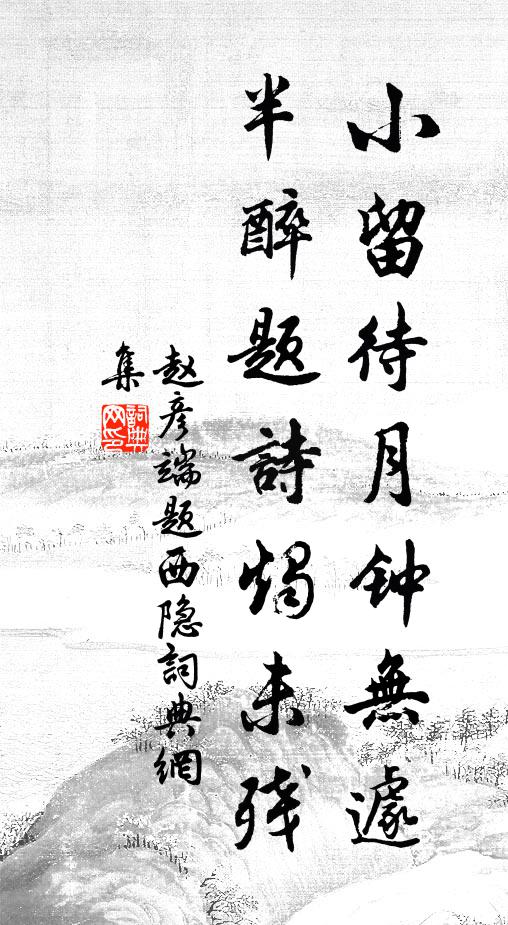 小留待月钟無遽
半醉题詩燭未残
赵彦端题西隐詞典網
集
詞典
网印